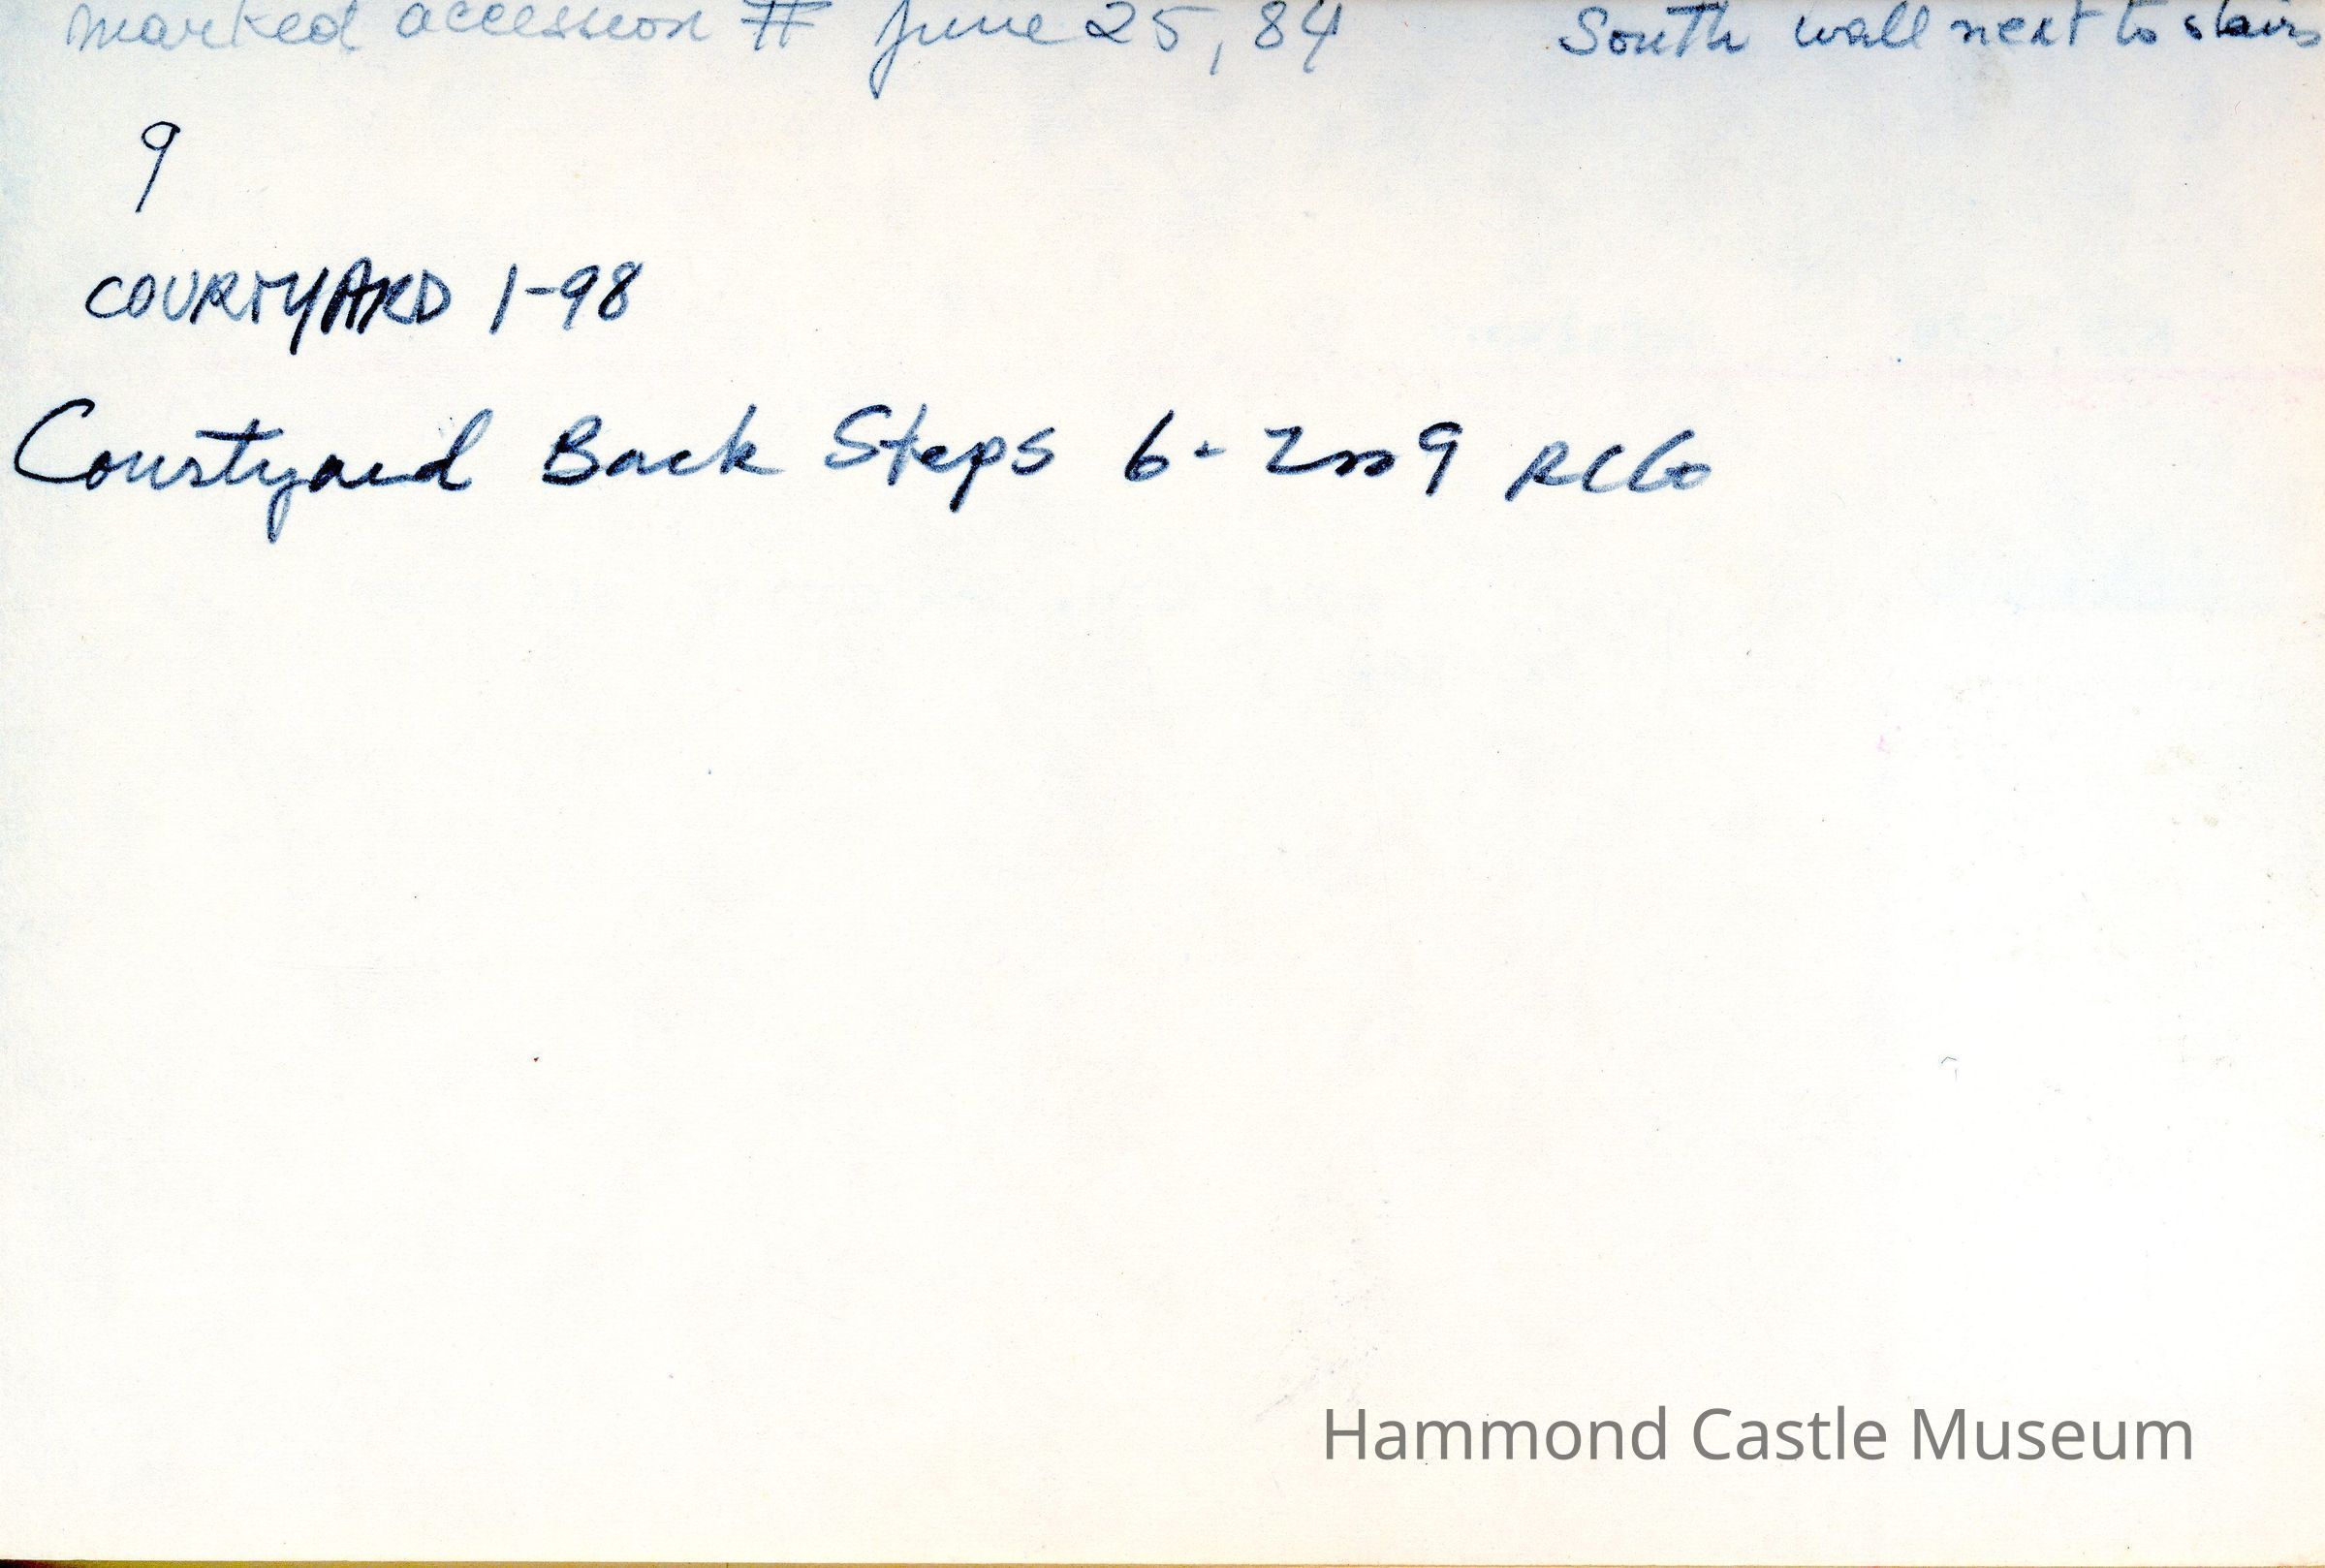 marked accession # June 25, 84 South wall next to stairs
9
COURTYARD 1-98
Courtyard Back Steps 6-2009 RCG
Hammond Castle Museum